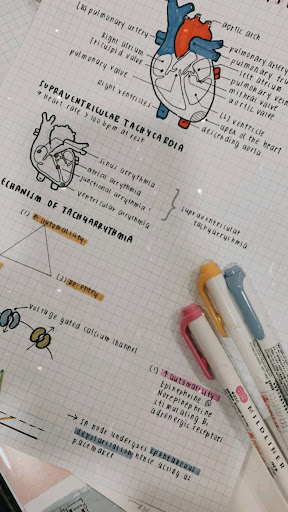 (R) pulmonary artery
Right atrium
Tricuspid valve
pulmonary valve
Right ventricles
aortic arch
pulmonary artery
pulmonary
left atrium
pulmonary vein
mitral valve
aortic valve
(L) ventricle
apex of the heart
descending aorta
SUPRAVENTRICULAR TACHYCARDIA
→ heart rate > 100 bpm at rest
sinus arrythmia
atrial arrythmia
junctional arrythmia
ventricular arrythmia
supraventricular
tachyarrythmia
ECHANISM OF TACHYARRYTHMIA
(1) ↑ automaticity
(2) re-entry
voltage gated calcium channel
(1) ↑ automaticity
Epinephrine @
Norepinephrine
stimulating B1
adrenergic receptors
→ SA node undergoes spontaneous
depolarization hence acting as
pacemaker
MILDLINER